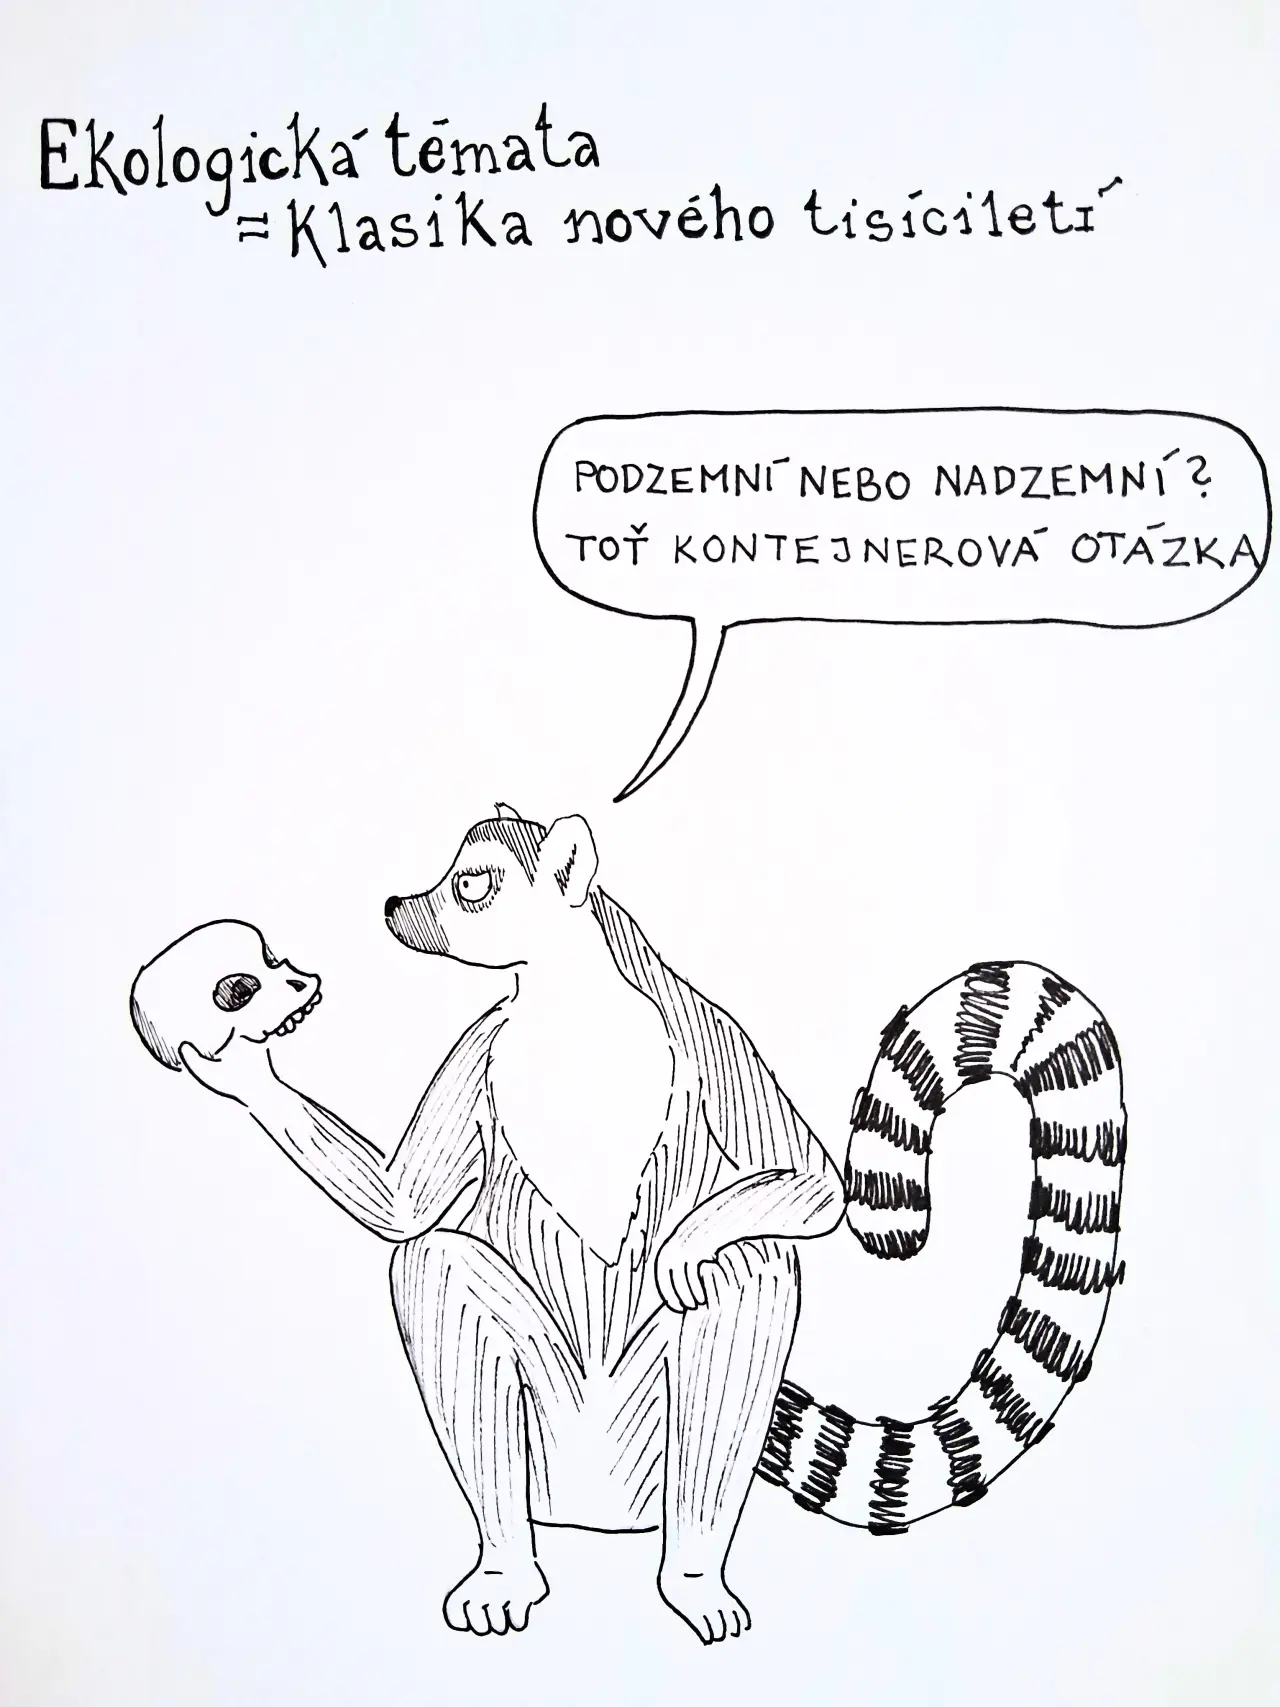 Ekologická témata
= Klasika nového tisíciletí
PODZEMNÍ NEBO NADZEMNÍ?
TOŤ KONTEJNEROVÁ OTÁZKA